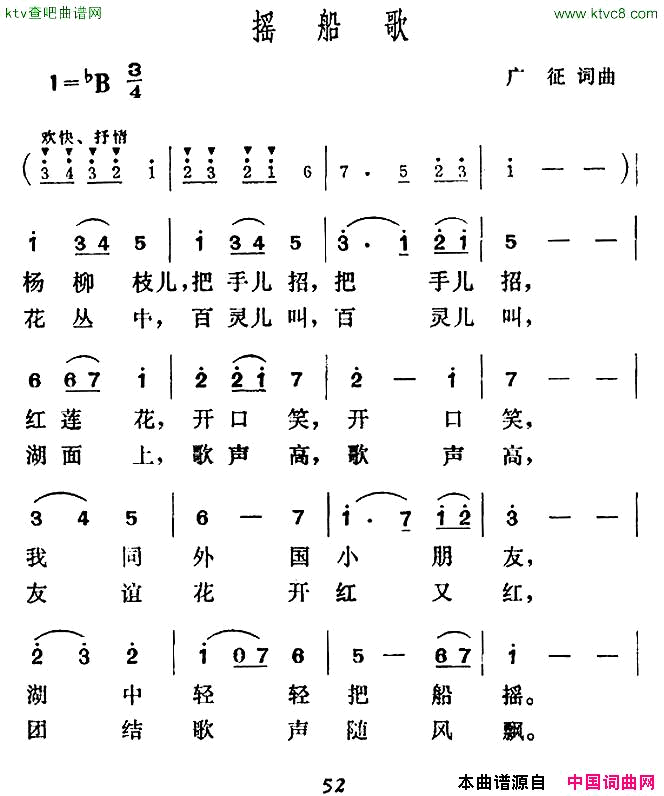 ktv查吧曲谱网
www.ktvc8.com
摇船歌
1=♭B 3/4
广征 词曲
欢快、抒情
( 3̇ 4̇ 3̇ 2̇ 1̇ | 2̇ 3̇ 2̇ 1̇ 6 | 7 . 5 2̇ 3̇ | 1̇ — — )|
1̇ 3̇ 4̇ 5 | 1̇ 3̇ 4̇ 5 | 3̇ . 1̇ 2̇ 1̇ | 5 — — |
杨柳枝儿,把手儿招,把手儿招,
花丛中,百灵儿叫,百灵儿叫,
6 6 7 1̇ | 2̇ 2̇ 1̇ 7 | 2̇ — 1̇ | 7 — — |
红莲花,开口笑,开口笑,
湖面上,歌声高,歌声高,
3 4 5 | 6 — 7 | 1̇ . 7 1̇ 2̇ | 3̇ — — |
我同外国小朋友,
友谊花开红又红,
2̇ 3̇ 2̇ | 1̇ 0 7 6 | 5 — 6 7 | 1̇ — — |
湖中轻轻把船摇。
团结歌声随风飘。
52
本曲谱源自 中国词曲网